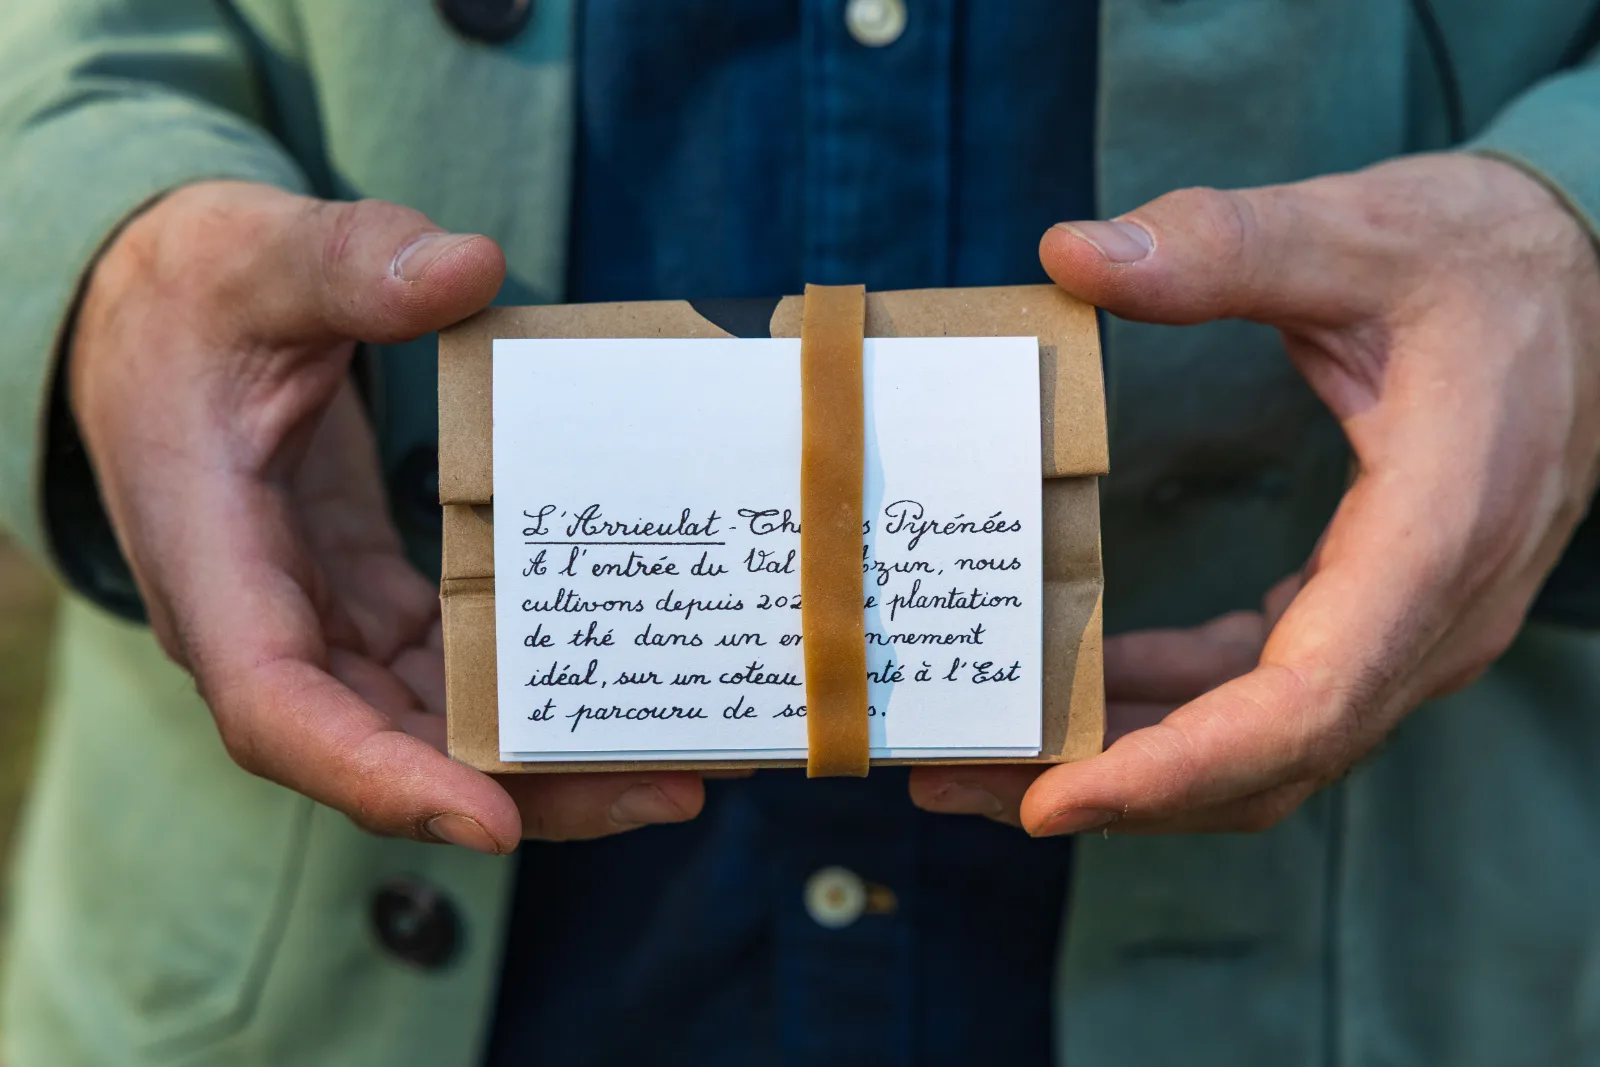 L'Arrieulat - Pyrénées
A l'entrée du Val nous
cultivons depuis plantation
de thé dans un
idéal, sur un coteau à l'Est
et parcouru de